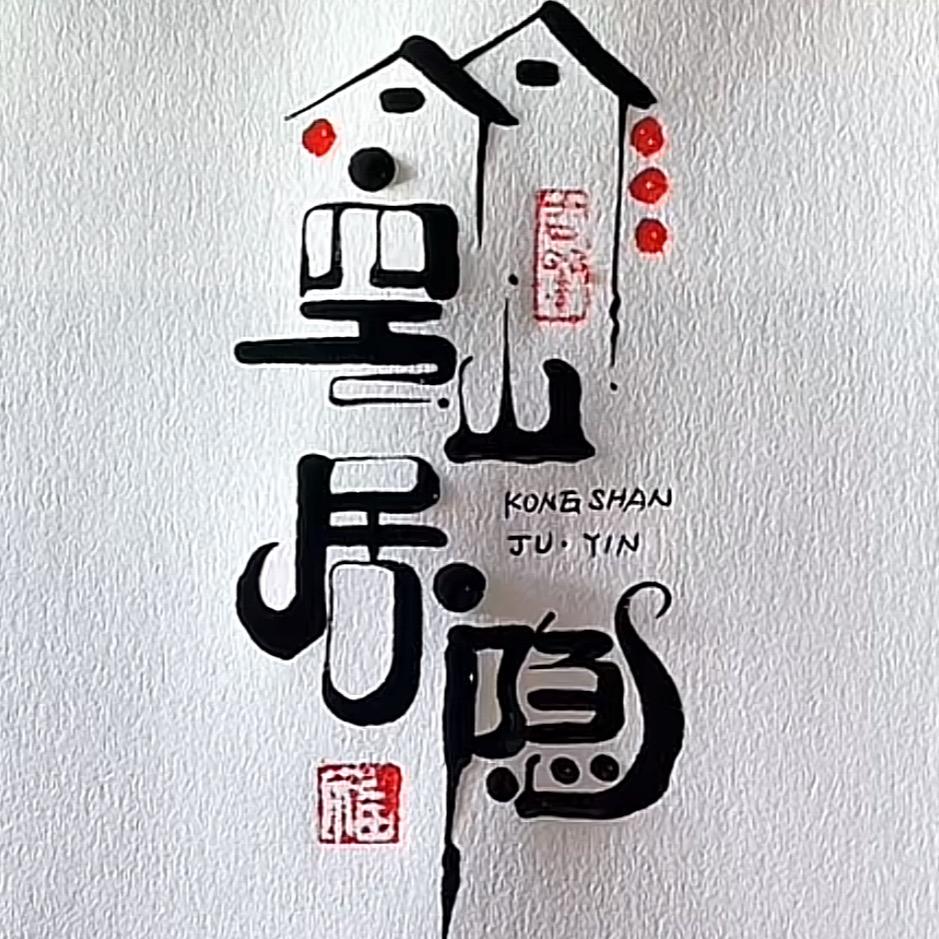 空山
居隐
KONG SHAN
JU·YIN
福